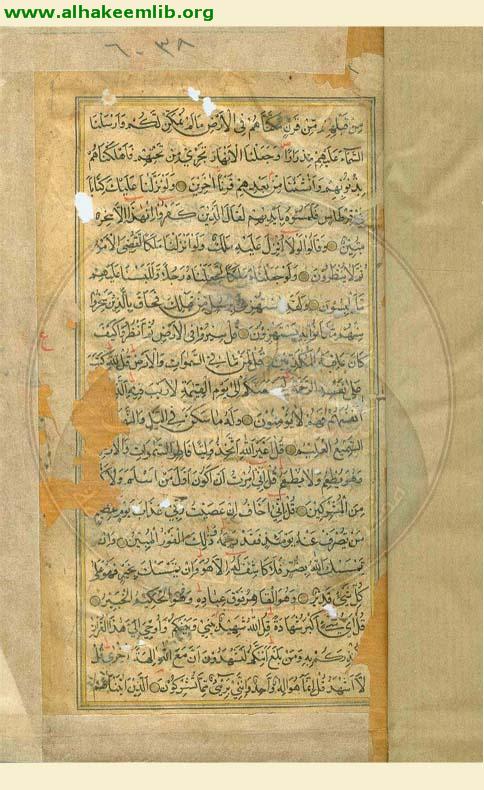 www.alhakeemlib.org
٦٠٣٨
من قبلهم من قرن مكناهم في الارض ما لم نمكن لكم وارسلنا
السماء عليهم مدرارا وجعلنا الانهار تجري من تحتهم فاهلكناهم
بذنوبهم وانشأنا من بعدهم قرنا اخرين ولو نزلنا عليك كتابا
قرطاس فلمسوه بايديهم لقال الذين كفروا ان هذا الا سحر
مبين وقالوا لولا انزل عليه ملك ولو انزلنا ملكا لقضي الامر
ثم لا ينظرون ولو جعلناه ملكا لجعلناه رجلا وللبسنا عليهم
ما يلبسون ولقد من قبلك فحاق بالذين سخروا
منهم ما كانوا به يستهزؤن قل سيروا في الارض ثم انظروا كيف
كان عاقبة المكذبين قل لمن ما في السموات والارض قل لله كتب
على نفسه الرحمة الى يوم القيمة لا ريب فيه الذين
انفسهم فهم لا يؤمنون وله ما سكن في الليل والنهار
السميع العليم قل اغير الله اتخذ وليا فاطر السموات والارض
وهو يطعم ولا يطعم قل اني امرت ان اكون اول من اسلم ولا
من المشركين قل اني اخاف ان عصيت ربي عذاب يوم عظيم
من يصرف عنه يومئذ فقد رحمه وذلك الفوز المبين وان
يمسسك الله بضر فلا كاشف له الا هو وان يمسسك بخير فهو على
كل شيء قدير وهو القاهر فوق عباده وهو الحكيم الخبير
قل اي شيء اكبر شهادة قل الله شهيد بيني وبينكم واوحي الي هذا القران
لانذركم به ومن بلغ ائنكم لتشهدون ان مع الله الهة اخرى قل
لا اشهد قل انما هو اله واحد وانني بريء مما تشركون الذين اتيناهم